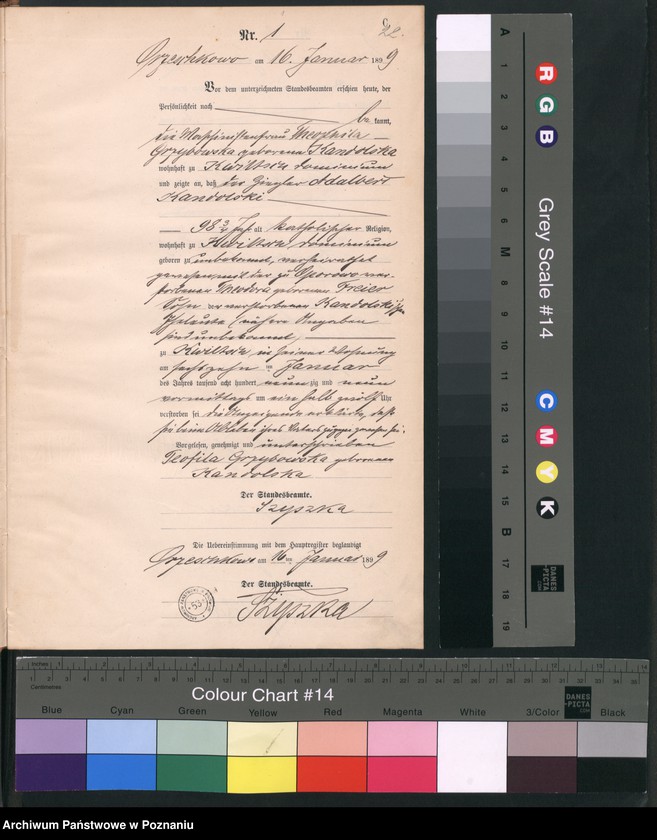 C.
22.
Nr. 1
Orzeschkowo am 16. Januar 1899
Vor dem unterzeichneten Standesbeamten erschien heute, der
Persönlichkeit nach
be kannt,
die Maschinistenfrau Theophila
Grzybowska geborene Kandolska
wohnhaft zu Kwiltsch dominium
und zeigte an, daß der Ziegler Adalbert
Kandolski
98 3/4 Jahr alt katholischer Religion,
wohnhaft zu Kwiltsch, dominium
geboren zu unbekannt, verheirathet
gewesen mit der zu Oporowo ver-
storbenen Theodora geborenen Freier
Sohn der verstorbenen Kandolski'schen
Eheleute (nähere Angaben
sind unbekannt)
zu Kwiltsch, in seiner Wohnung
am sechszehn ten Januar
des Jahres tausend acht hundert neun zig und neun
vormittags um ein halb zwölf Uhr
verstorben sei die Anzeigende erklärte, daß
sie beim Ableben ihres Vaters zugegen gewesen sei.
Vorgelesen, genehmigt und unterschrieben
Teofila Grzybowska geborene
Kandolska
Der Standesbeamte.
Szyszka
Die Uebereinstimmung mit dem Hauptregister beglaubigt
Orzeschkowo am 16 ten Januar 1899
Der Standesbeamte.
Szyszka
A 1 2 3 4 5 6 M 8 9 10 11 12 13 14 15 B 17 18 19
R G B
Grey Scale #14
C M Y K
DANES
-PICTA
.COM
Inches 1 2 3 4 5 6 7 8 9 10 11 12 13 14
Centimetres
Colour Chart #14
DANES
-PICTA
.COM
Blue Cyan Green Yellow Red Magenta White 3/Color Black
Archiwum Państwowe w Poznaniu